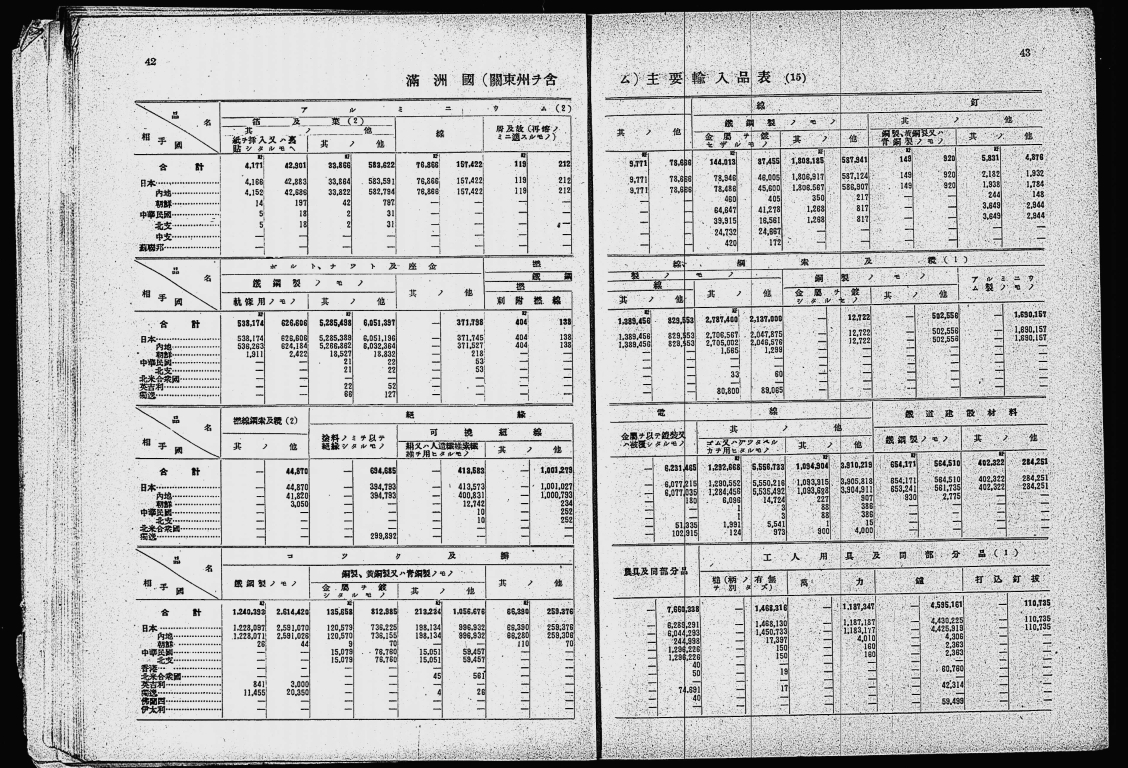 42
滿洲國(關東州ヲ含
品名
相手國
アルミニウム(2)
箔及葉(2)
其ノ他
紙ヲ挿入又ハ裏貼シタルモノ
其ノ他
線
屑及故(再熔ノミニ適スルモノ)
合計 4,171 42,901 33,866 583,622 76,866 157,422 119 212
日本 4,166 42,883 33,864 583,591 76,866 157,422 119 212
內地 4,152 42,686 33,822 582,794 76,866 157,422 119 212
朝鮮 14 197 42 797 — — — —
中華民國 5 18 2 31 — — — —
北支 5 18 2 31 — — — —
中支 — — — — — — — —
蘇聯邦 — — — — — — — —
品名
相手國
ボルト、ナツト及座金
鐵鋼製ノモノ
軌條用ノモノ
其ノ他
其ノ他
撚
鐵鋼
撚
別附撚線
合計 538,174 626,606 5,285,498 6,051,397 — 371,798 404 138
日本 538,174 626,606 5,285,389 6,051,196 — 371,745 404 138
內地 536,263 624,184 5,266,862 6,032,364 — 371,527 404 138
朝鮮 1,911 2,422 18,527 18,832 — 218 — —
中華民國 — — 21 22 — 53 — —
北支 — — 21 22 — 53 — —
北米合衆國 — — — — — — — —
英吉利 — — 22 52 — — — —
獨逸 — — 66 127 — — — —
品名
相手國
撚線鋼索及纜(2)
其ノ他
絕緣
塗料ノミヲ以テ絕緣シタルモノ
可撓紐線
絹又ハ人造纖維素纖維ヲ用ヒタルモノ
其ノ他
合計 — 44,870 — 694,685 — 413,583 — 1,001,279
日本 — 44,870 — 394,793 — 413,573 — 1,001,027
內地 — 41,820 — 394,793 — 400,831 — 1,000,793
朝鮮 — 3,050 — — — 12,742 — 234
中華民國 — — — — — 10 — 252
北支 — — — — — 10 — 252
北米合衆國
獨逸 — — — 299,892 — — — —
品名
相手國
コツク及瓣
鐵鋼製ノモノ
銅製、黃銅製又ハ青銅製ノモノ
金屬ヲ鍍シタルモノ
其ノ他
其ノ他
合計 1,240,393 2,614,420 135,658 812,985 213,234 1,056,676 66,390 259,376
日本 1,228,097 2,591,070 120,579 736,225 198,134 996,932 66,390 259,376
內地 1,228,071 2,591,026 120,570 736,155 198,134 996,932 66,280 259,306
朝鮮 26 44 9 70 — — 110 70
中華民國 — — 15,079 76,760 15,051 59,457 — —
北支 — — 15,079 76,760 15,051 59,457 — —
香港
北米合衆國 — — — — 45 561 — —
英吉利 841 3,000 — — — — — —
獨逸 11,455 20,350 — — 4 26 — —
佛蘭西
伊太利
43
ム)主要輸入品表(15)
線釘
其ノ他
鐵鋼製ノモノ
金屬ヲ鍍セザルモノ
其ノ他
其ノ他
銅製、黃銅製又ハ青銅製ノモノ
其ノ他
9,771 78,666 144,013 87,455 1,808,185 587,941 149 920 5,831 4,876
9,771 78,666 78,946 46,005 1,806,917 587,124 149 920 2,182 1,932
9,771 78,666 78,486 45,600 1,806,567 586,907 149 920 1,938 1,784
— — 460 405 350 217 — — 244 148
— — 64,647 41,278 1,268 817 — — 3,649 2,944
— — 39,915 16,561 1,268 817 — — 3,649 2,944
— — 24,732 24,667 — — — — — —
— — 420 172 — — — — — —
線、鋼索及纜(1)
製ノモノ
線
其ノ他
其ノ他
銅製ノモノ
金屬ヲ鍍シタルモノ
其ノ他
アルミニウム製ノモノ
1,389,456 829,553 2,787,400 2,137,000 — 12,722 — 502,556 — 1,690,157
1,389,456 829,553 2,706,567 2,047,875 — 12,722 — 502,556 — 1,690,157
1,389,456 829,553 2,705,002 2,046,576 — 12,722 — 502,556 — 1,690,157
— — 1,565 1,299 — — — — — —
— — 33 60 — — — — — —
— — 80,800 89,065 — — — — — —
電線
金屬ヲ以テ鎧裝又ハ被覆シタルモノ
其ノ他
ゴム又ハグツタペルカヲ用ヒタルモノ
其ノ他
鐵道建設材料
鐵鋼製ノモノ
其ノ他
— 6,231,465 1,292,668 5,556,733 1,094,904 3,910,219 654,171 564,510 402,322 284,251
— 6,077,215 1,290,552 5,550,216 1,093,915 3,905,818 654,171 564,510 402,322 284,251
— 6,077,035 1,284,456 5,535,492 1,093,688 3,904,911 653,241 561,735 402,322 284,251
— 180 6,096 14,724 227 907 930 2,775 — —
— — 1 3 88 386 — — — —
— — 1 3 88 386 — — — —
— 51,335 1,991 5,541 1 15 — — — —
— 102,915 124 973 900 4,000 — — — —
農具及同部分品
工人用具及同部分品(1)
槌(柄ノ有無ヲ別タズ)
萬力
鑪
打込釘拔
— 7,660,338 — 1,468,316 — 1,187,347 — 4,595,161 — 110,735
— 6,289,291 — 1,468,130 — 1,187,187 — 4,430,225 — 110,735
— 6,044,293 — 1,450,733 — 1,183,177 — 4,425,919 — 110,735
— 244,998 — 17,397 — 4,010 — 4,306 — —
— 1,296,226 — 150 — 160 — 2,363 — —
— 1,296,226 — 150 — 160 — 2,363 — —
— 40 — — — — — — — —
— 50 — 19 — — — 60,760 — —
— 74,691 — 17 — — — 42,314 — —
— 40 — — — — — 59,499 — —